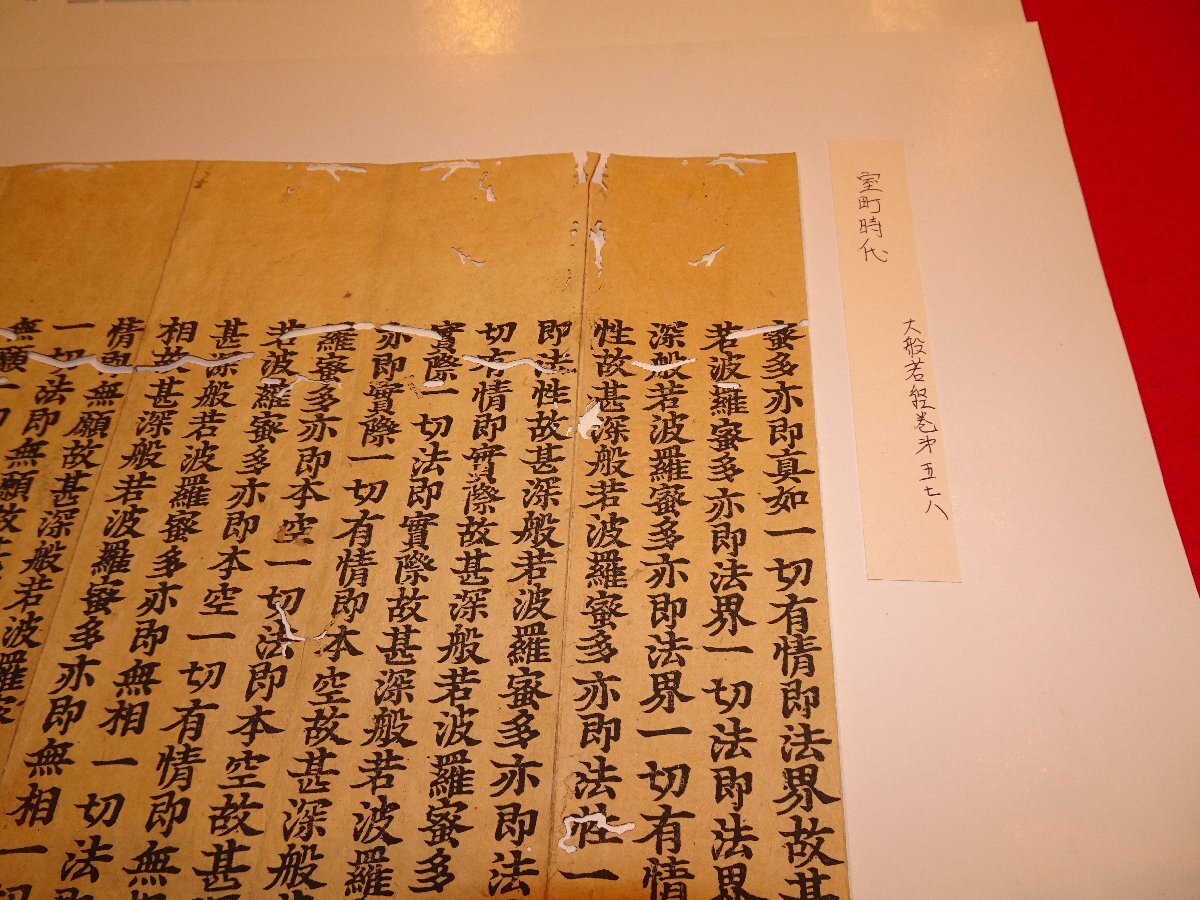 室町時代
大般若経巻第五七八
蜜多亦即真如一切有情即法界故甚
若波羅蜜多亦即法界一切法即法界
深般若波羅蜜多亦即法界一切有情
性故甚深般若波羅蜜多亦即法性一
即法性故甚深般若波羅蜜多亦即法
切有情即實際故甚深般若波羅蜜多
實際一切法即實際故甚深般若波羅
亦即實際一切有情即本空故甚深般
羅蜜多亦即本空一切法即本空故甚
若波羅蜜多亦即本空一切有情即無
甚深般若波羅蜜多亦即無相一切法
相故甚深般若波羅蜜多亦即無相一
情即無願故甚深般若波羅蜜
一切法即無願故
無願一切